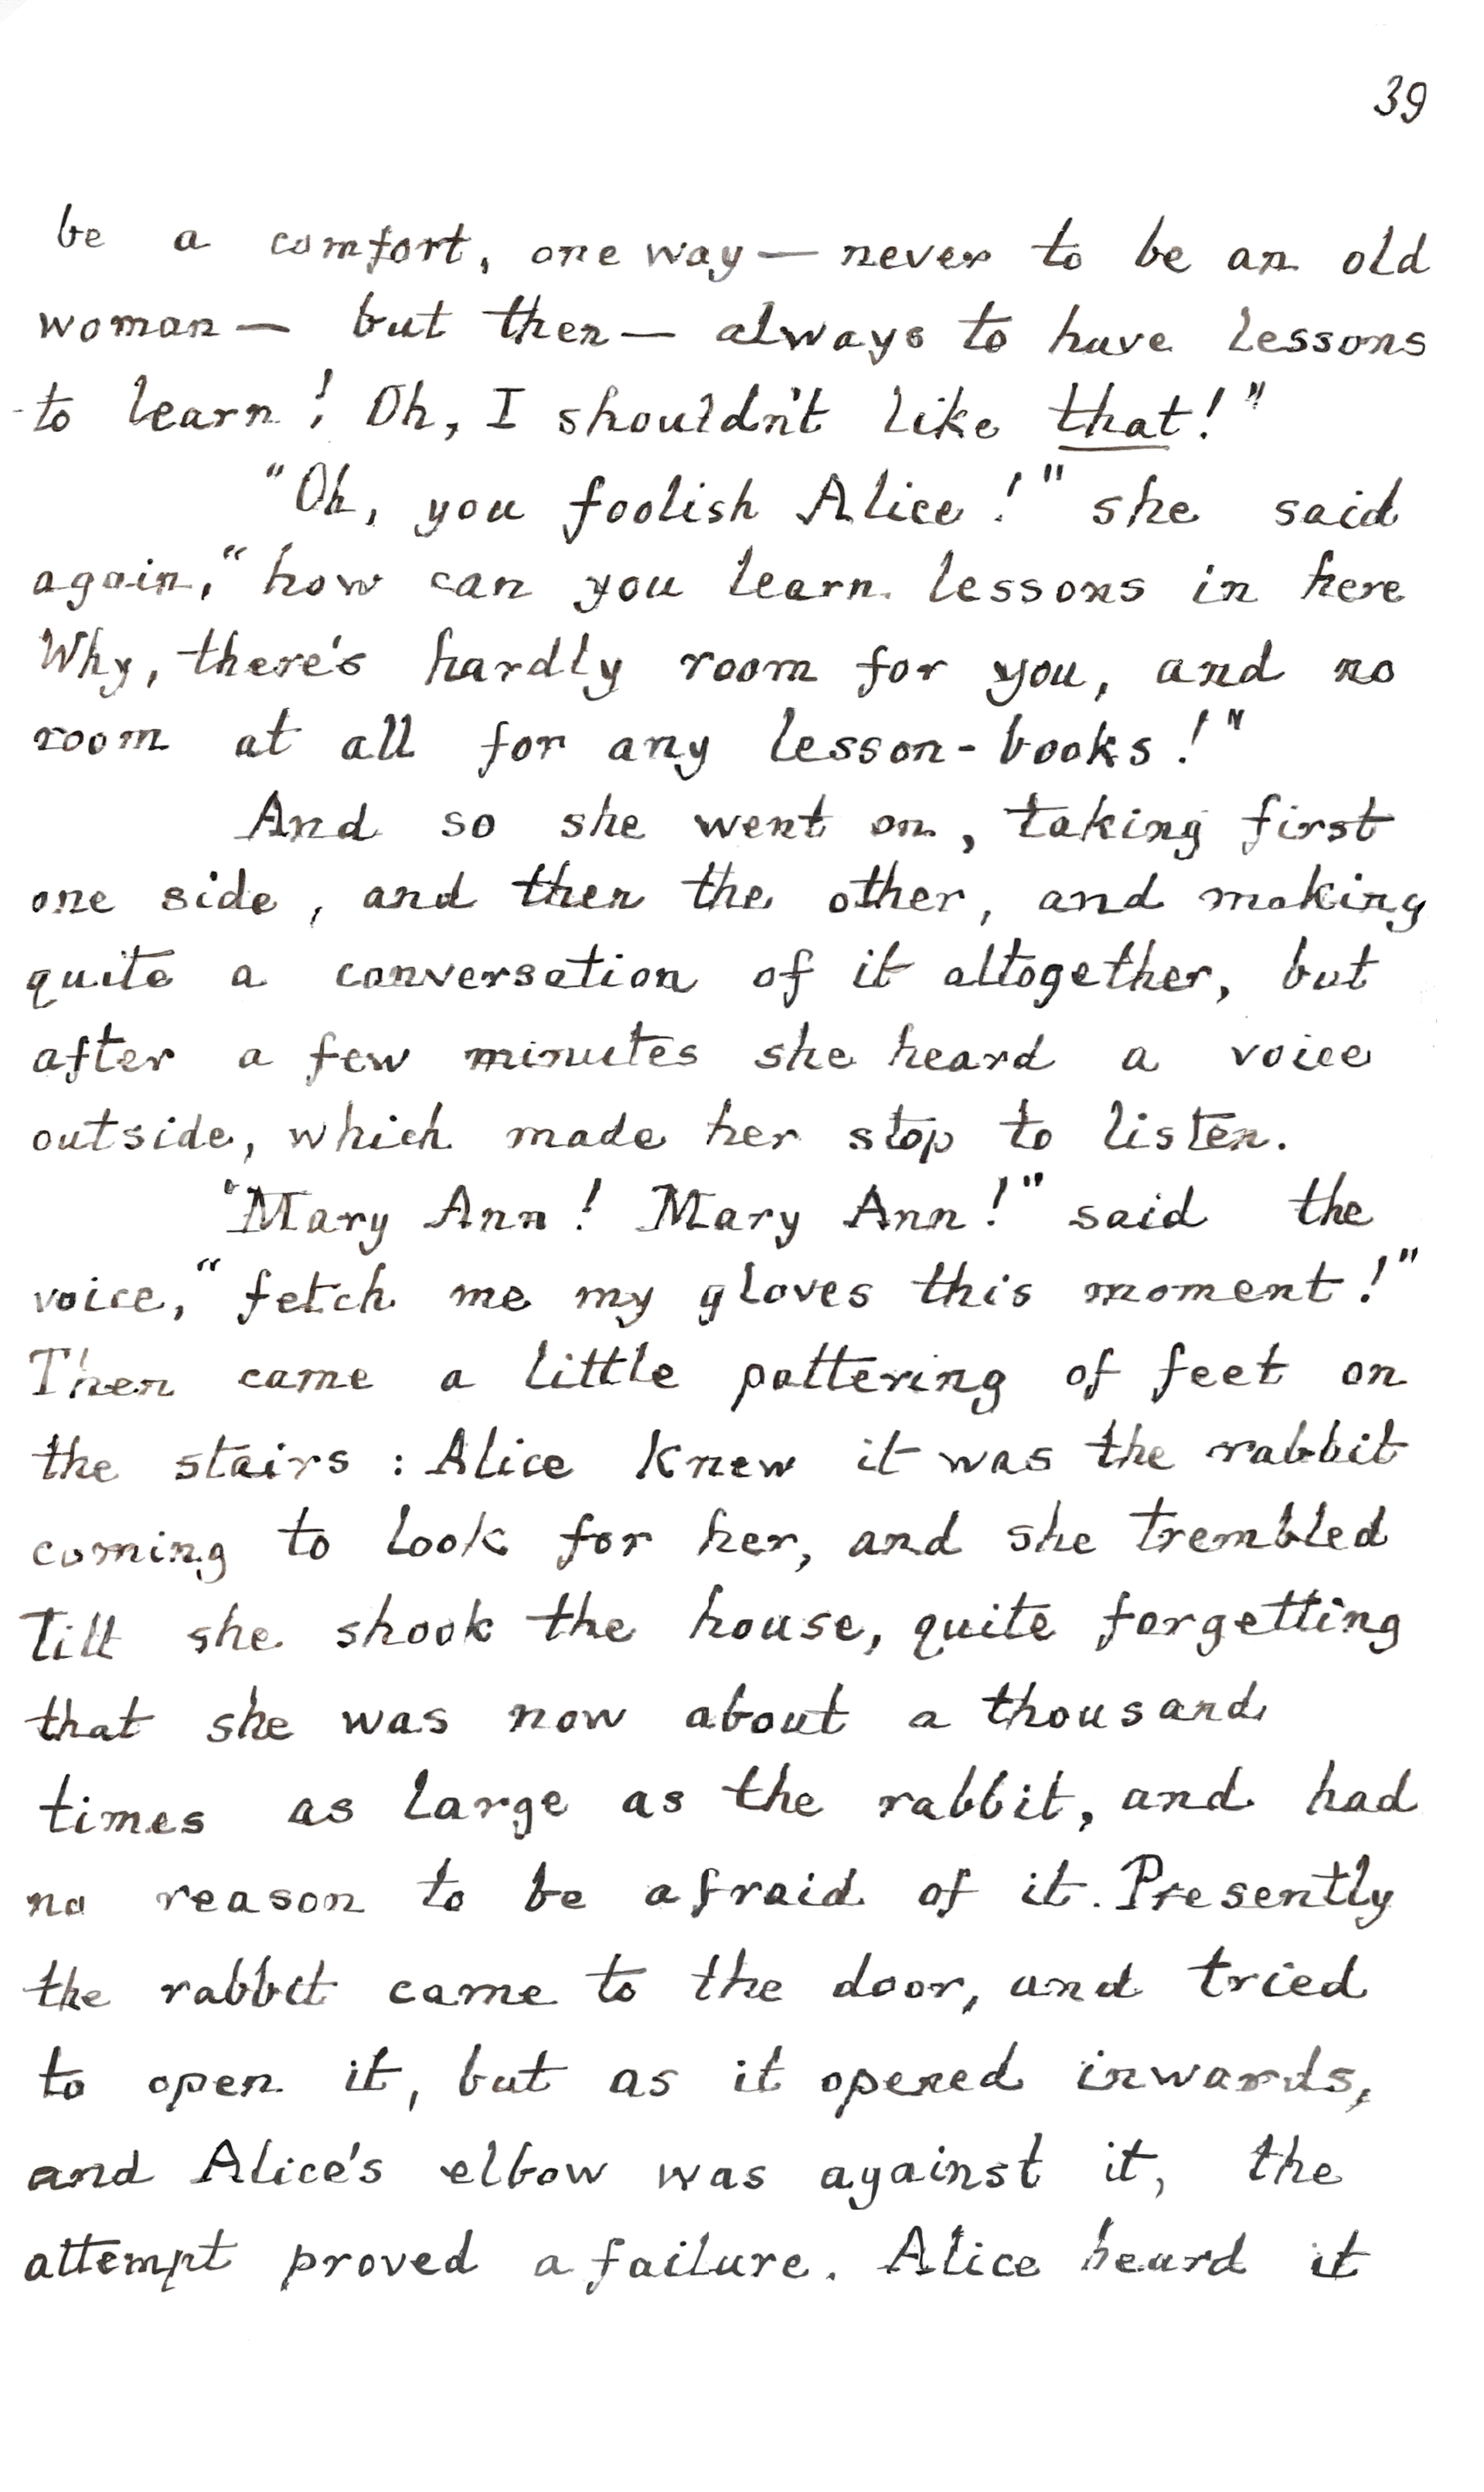 39
be a comfort, one way — never to be an old
woman — but then — always to have lessons
to learn! Oh, I shouldn't like that!"
"Oh, you foolish Alice!" she said
again, "how can you learn lessons in here
Why, there's hardly room for you, and no
room at all for any lesson-books!"
And so she went on, taking first
one side, and then the other, and making
quite a conversation of it altogether, but
after a few minutes she heard a voice
outside, which made her stop to listen.
"Mary Ann! Mary Ann!" said the
voice, "fetch me my gloves this moment!"
Then came a little pattering of feet on
the stairs : Alice knew it was the rabbit
coming to look for her, and she trembled
till she shook the house, quite forgetting
that she was now about a thousand
times as large as the rabbit, and had
no reason to be afraid of it. Presently
the rabbit came to the door, and tried
to open it, but as it opened inwards,
and Alice's elbow was against it, the
attempt proved a failure. Alice heard it